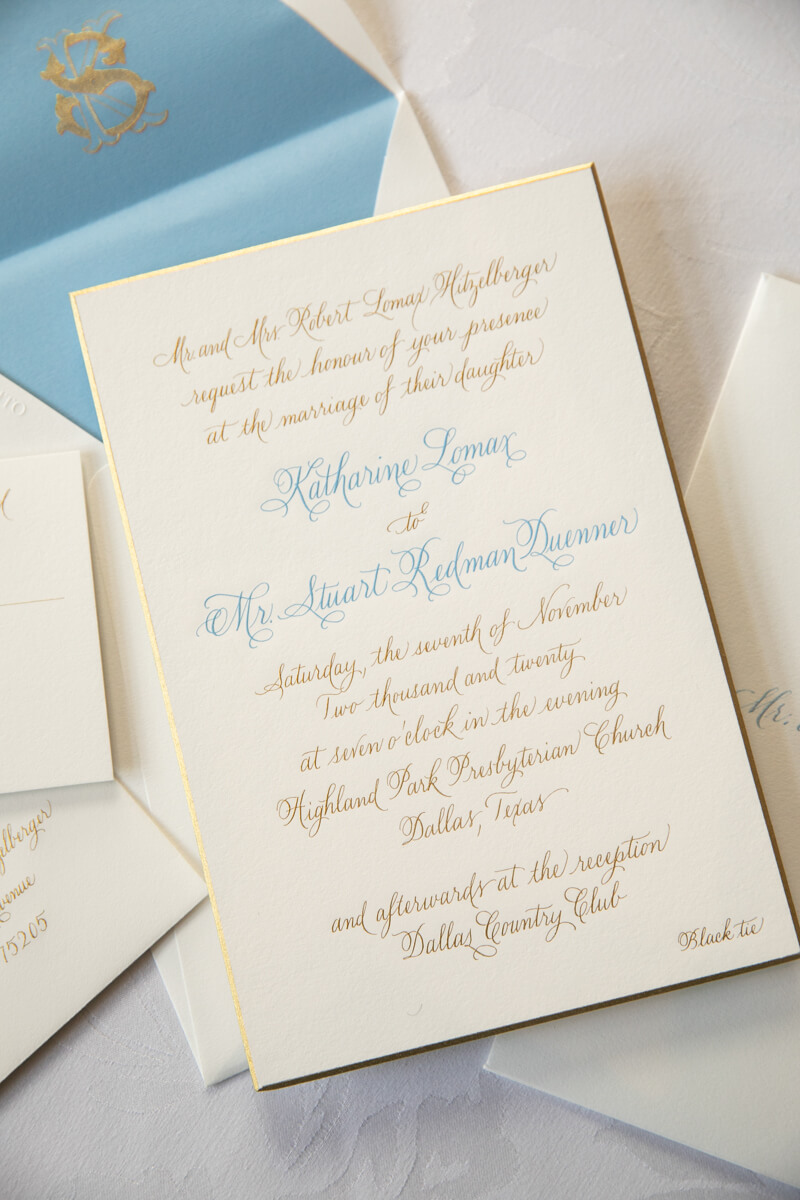 Mr. and Mrs. Robert Lomax Hitzelberger
request the honour of your presence
at the marriage of their daughter
Katharine Lomax
to
Mr. Stuart Redman Duenner
Saturday, the seventh of November
Two thousand and twenty
at seven o'clock in the evening
Highland Park Presbyterian Church
Dallas, Texas
and afterwards at the reception
Dallas Country Club
Black tie
75205
Mr.